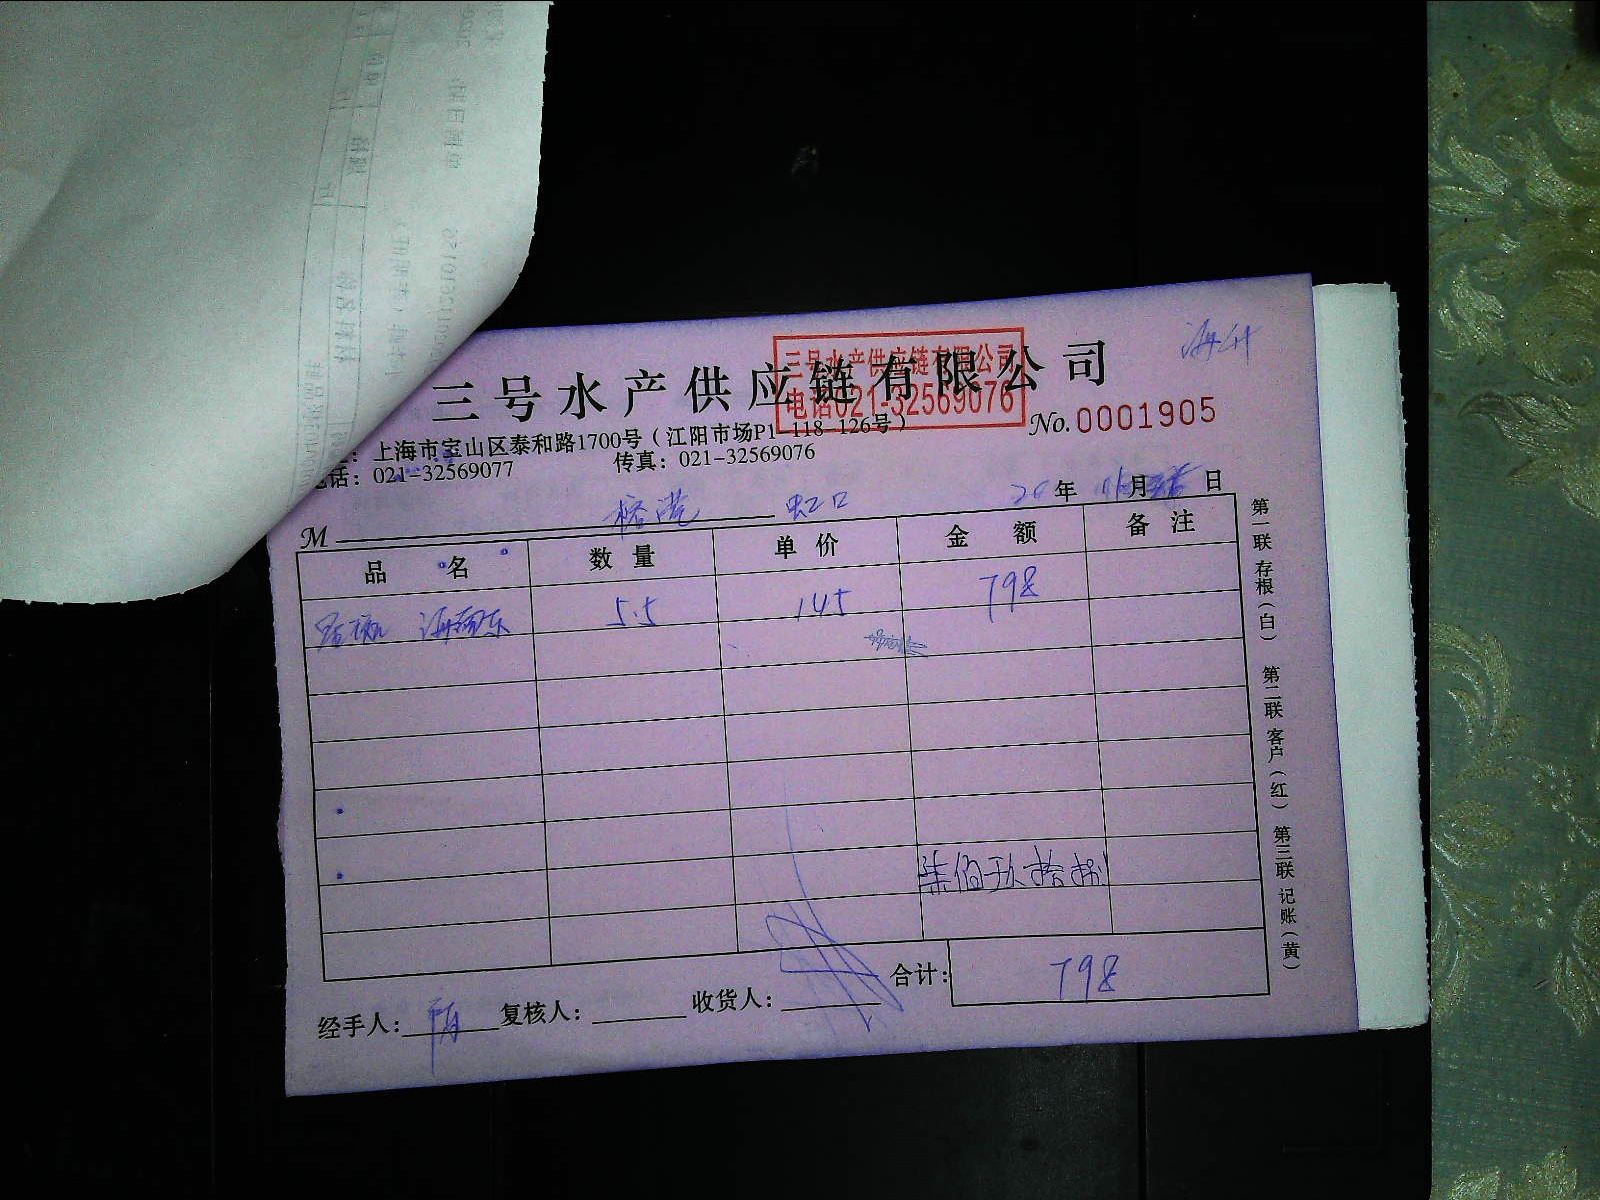 三号水产供应链有限公司
三号水产供应链有限公司
电话021-32569076
海竹
No.0001905
：上海市宝山区泰和路1700号（江阳市场P1-118-126号）
话：021-32569077 传真：021-32569076
M 榕港 虹口 20年 月 日
品 名 数 量 单 价 金 额 备 注
海南东 5.5 145 798
柒佰玖拾捌
合计：798
经手人： 复核人： 收货人：
第一联 存根（白） 第二联 客户（红） 第三联 记账（黄）